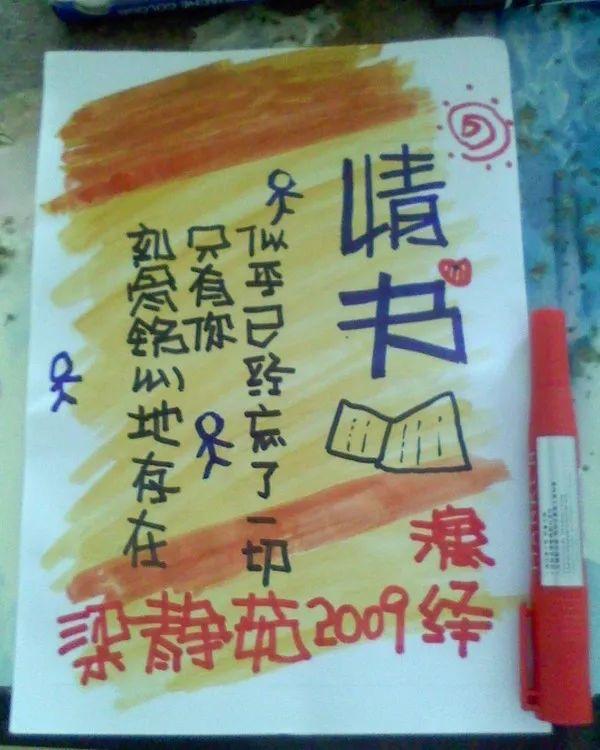 情书
似乎已经忘了一切
只有你
刻骨铭心地存在
梁静茹2009
演绎